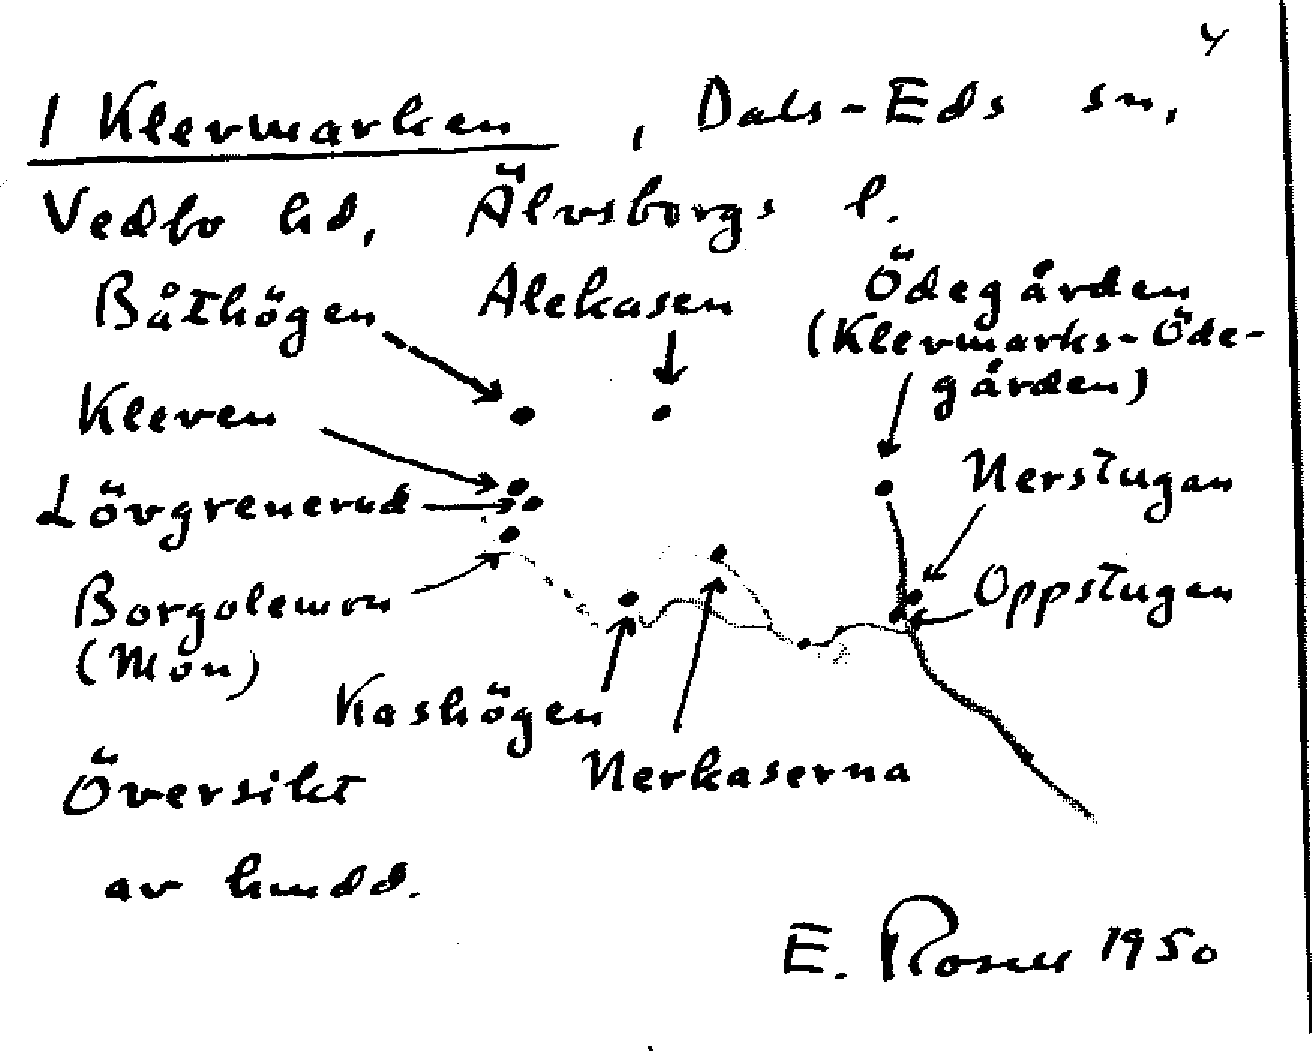 4
1 Klevmarken, Dals-Eds sn,
Vedbo hd, Älvsborgs l.
Båthögen Alekasen Ödegården
(Klevmarks-Öde-
gården)
Kleven
Nerstugan
Lövgrenerud
Oppstugan
Borgolemon
(Mon)
Kashögen
Nerkaserna
Översikt
av hmdd.
E. Rosell 1950